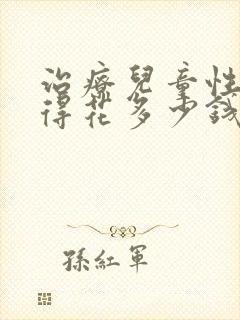 治療兒童性
得花多少錢
孫紅軍